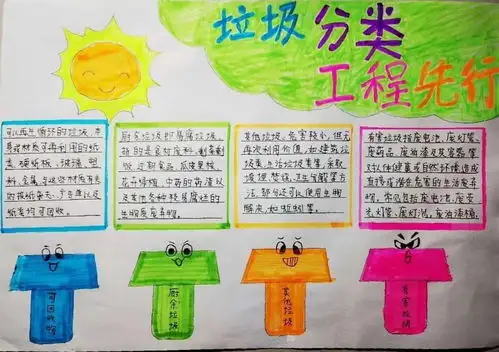 垃圾分类
工程先行
可以再生循环的垃圾,本
身或材质可再利用的纸
类、硬纸板、玻璃、塑
料、金属,与这些材质有关
的如报纸、广告单以及
纸类均可回收。
厨余垃圾即易腐垃圾,
指的是食材废料、剩菜剩
饭、过期食品、瓜皮果核、
花卉绿植、中药的药渣以
及其他各种易腐烂的
生物质废弃物。
其他垃圾,危害较小,但无
再次利用价值,如建筑垃
圾类,生活垃圾类等,采取
填埋、焚烧、卫生分解等方
法,部分还可以使用生物
解决,如放蚯蚓等。
有害垃圾指废电池、废灯管、
废药品、废油漆及其容器等
对人体健康或自然环境造成
直接或潜在危害的生活废弃
物。常见包括废电池、废荧
光灯管、废灯泡、废油漆桶。
可回收物
厨余垃圾
其他垃圾
有害垃圾